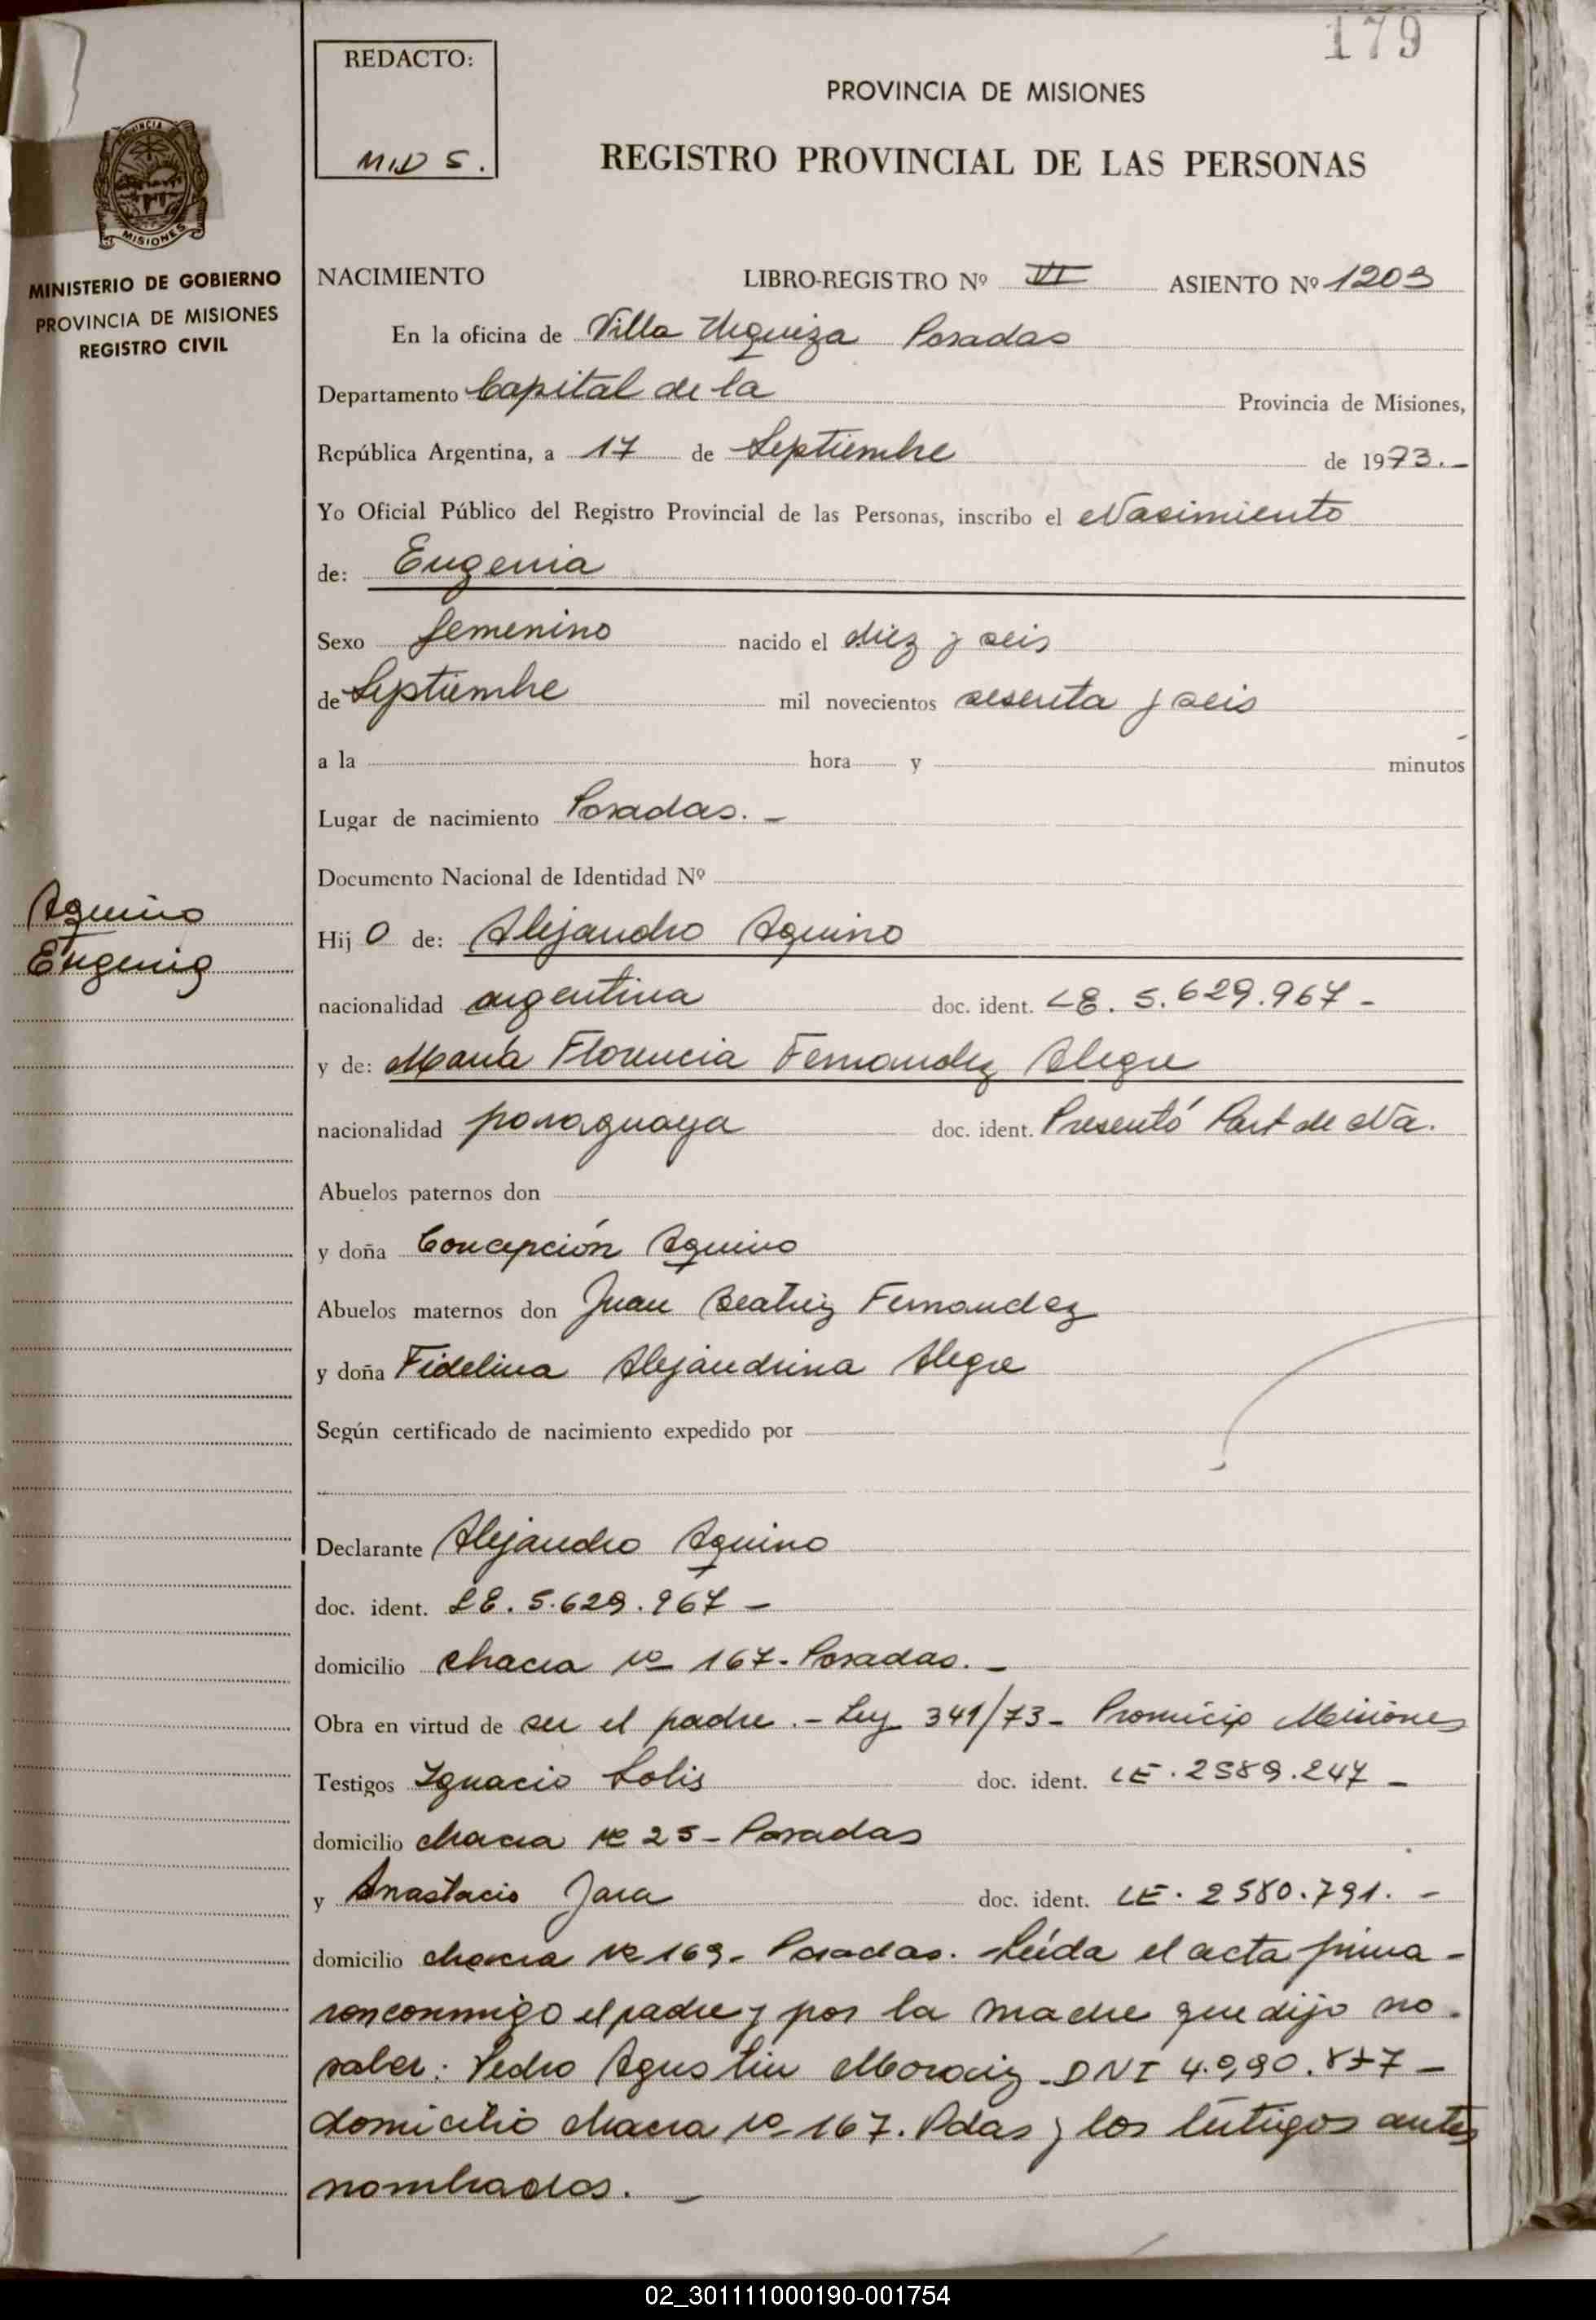 179
REDACTO:
PROVINCIA DE MISIONES
REGISTRO PROVINCIAL DE LAS PERSONAS
PROVINCIA DE
MISIONES
MINISTERIO DE GOBIERNO
PROVINCIA DE MISIONES
REGISTRO CIVIL
NACIMIENTO LIBRO-REGISTRO Nº VI ASIENTO Nº 1203
En la oficina de Villa Urquiza Posadas
Departamento Capital de la Provincia de Misiones,
República Argentina, a 17 de Septiembre de 1973.-
Yo Oficial Público del Registro Provincial de las Personas, inscribo el Nacimiento
de: Eugenia
Sexo femenino nacido el diez y seis
de Septiembre mil novecientos sesenta y seis
a la hora y minutos
Lugar de nacimiento Posadas.-
Documento Nacional de Identidad Nº
Aquino
Eugenia
Hij o de: Alejandro Aquino
nacionalidad argentina doc. ident. LE. 5.629.967-
y de: María Florencia Fernandez Alegre
nacionalidad paraguaya doc. ident. Presentó Part de Na.
Abuelos paternos don
y doña Concepción Aquino
Abuelos maternos don Juan Beatriz Fernandez
y doña Fidelina Alejandrina Alegre
Según certificado de nacimiento expedido por
Declarante Alejandro Aquino
doc. ident. LE. 5.629.967-
domicilio chacra Nº 167-Posadas.-
Obra en virtud de ser el padre.- Ley 341/73- Provincia Misiones
Testigos Ignacio Solis doc. ident. LE. 2589.247-
domicilio chacra Nº 25-Posadas
y Anastacio Jara doc. ident. LE. 2580.791.-
domicilio chacra Nº 169- Posadas. Leída el acta firma-
ron conmigo el padre y por la madre que dijo no
saber: Pedro Agustin DNI
domicilio chacra Nº 167. Pdas y los testigos antes
nombrados.-
02_301111000190-001754